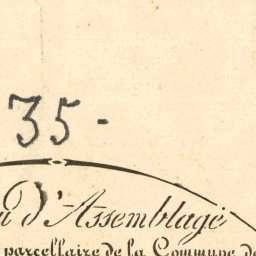 35-
d'Assemblage
parcellaire de la Commune de